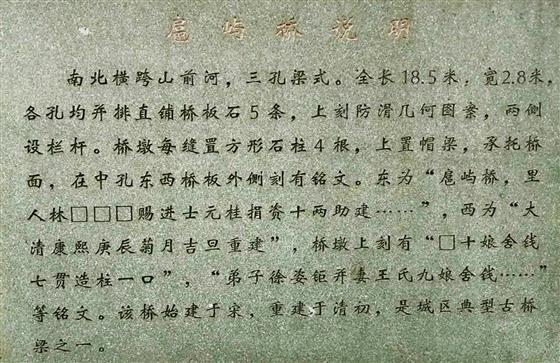 扈屿桥说明
南北横跨山前河，三孔梁式。全长18.5米，宽2.8米，
各孔均并排直铺桥板石5条，上刻防滑几何图案，两侧
设栏杆。桥墩每缝置方形石柱4根，上置帽梁，承托桥
面，在中孔东西桥板外侧刻有铭文。东为“扈屿桥，里
人林□□□赐进士元桂捐资十两助建……”，西为“大
清康熙庚辰菊月吉旦重建”，桥墩上刻有“□十娘舍钱
七贯造柱一口”，“弟子徐姿钜并妻王氏九娘舍钱……”
等铭文。该桥始建于宋，重建于清初，是城区典型古桥
梁之一。